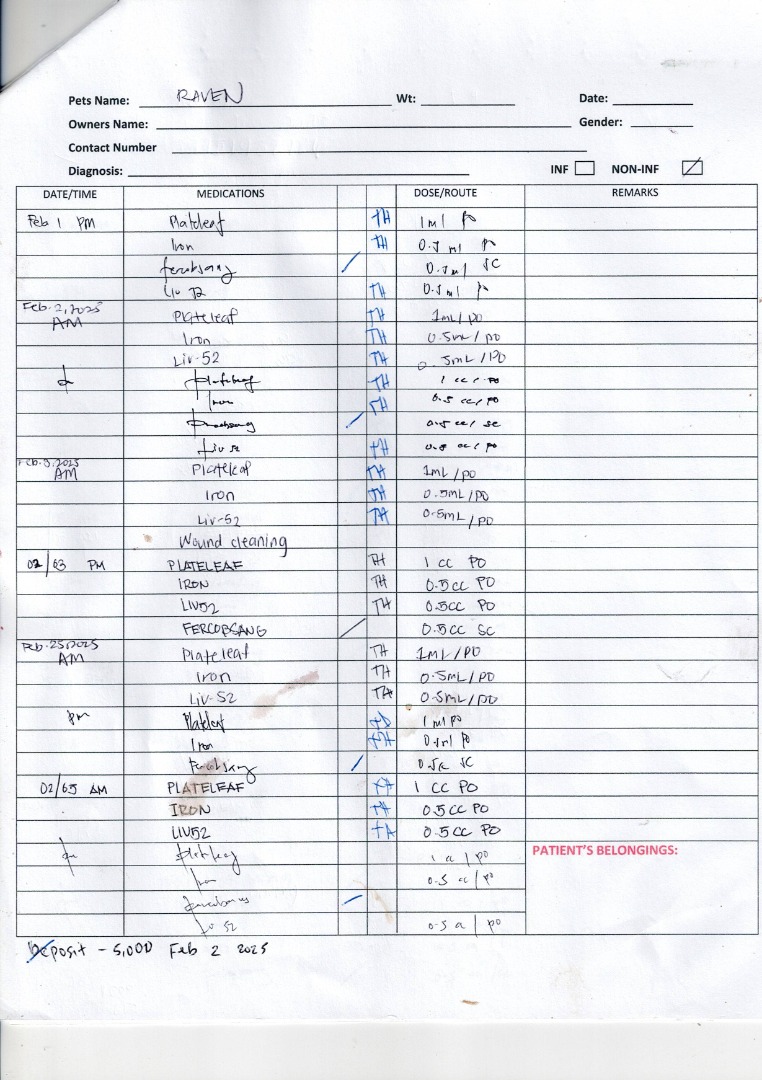 Pets Name: RAVEN Wt: Date:
Owners Name: Gender:
Contact Number
Diagnosis: INF NON-INF
DATE/TIME MEDICATIONS DOSE/ROUTE REMARKS
Feb 1 PM Plateleaf TH 1ml po
Iron TH 0.5 ml po
fercobsang 0.5ml SC
Liv 52 TH 0.5ml po
Feb. 2, 2025 AM Plateleaf TH 1mL/po
Iron TH 0.5mL/po
Liv-52 TH 0.5mL/PO
TH 1 cc/ po
Iron TH 0.5 cc/ po
0.5 cc/ sc
Liv 52 TH 0.5 cc/ po
Feb. 3, 2025 AM Plateleaf TH 1mL/po
Iron TH 0.5mL/po
Liv-52 TH 0.5mL/po
Wound cleaning
02/03 PM PLATELEAF TH 1 cc PO
IRON TH 0.5cc PO
LIV52 TH 0.5cc PO
FERCOBSANG 0.5cc SC
Feb. 2025 AM Plateleaf TH 1mL/PO
Iron TH 0.5mL/PO
Liv-52 TH 0.5mL/po
pm Plateleaf 1ml po
Iron TH 0.5ml po
Fercobsang 0.5cc SC
02/05 AM PLATELEAF TH 1 CC PO
IRON TH 0.5CC PO
LIV52 TH 0.5CC PO
PATIENT'S BELONGINGS:
/ po
0.5 cc / po
Liv 52 0.5 / po
Deposit - 5,000 Feb 2 2025